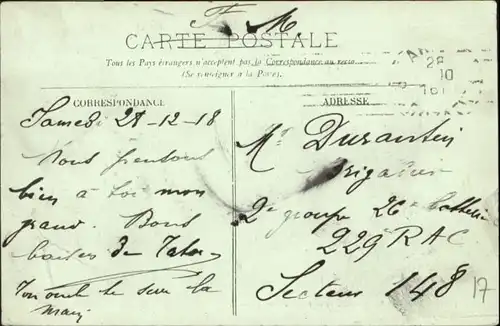 F. M.
CARTE POSTALE
Tous les Pays étrangers n'acceptent pas la Correspondance au recto
(Se renseigner à la Poste).
CORRESPONDANCE
Samedi 28-12-18
Nous pensons
bien à toi mon
grand. Bons
baisers de Tatas
Ton oncle te serre la
main
ADRESSE
28
10
Mr Durantin
Brigadier
2e groupe 26e batterie
229 RAC
Secteur 148
17